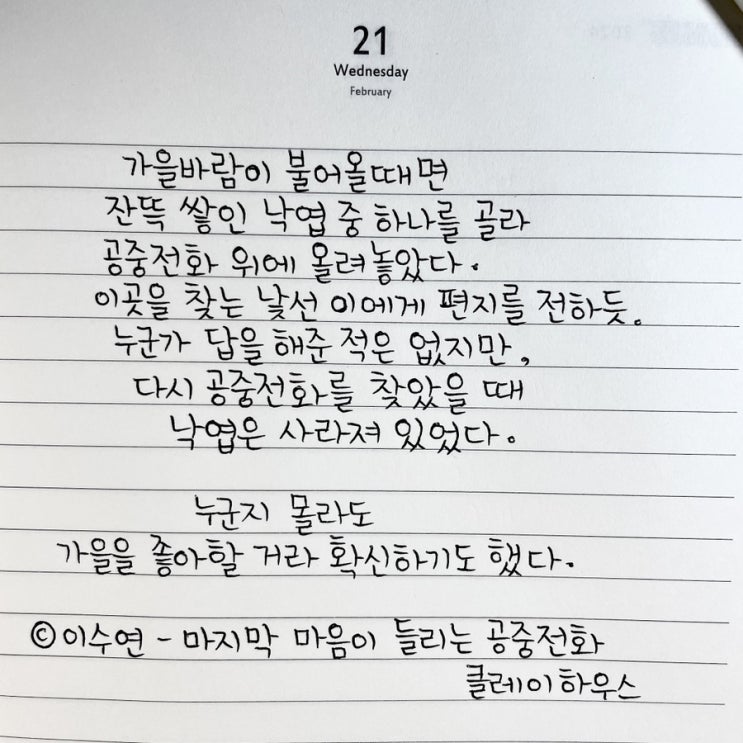 21
Wednesday
February
가을바람이 불어올때면
잔뜩 쌓인 낙엽 중 하나를 골라
공중전화 위에 올려놓았다.
이곳을 찾는 낯선 이에게 편지를 전하듯.
누군가 답을 해준 적은 없지만,
다시 공중전화를 찾았을 때
낙엽은 사라져 있었다.
누군지 몰라도
가을을 좋아할 거라 확신하기도 했다.
©이수연 - 마지막 마음이 들리는 공중전화
클레이하우스